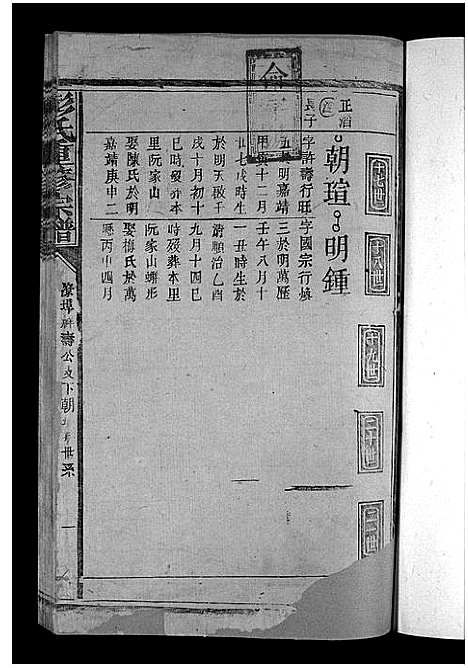 十七世
十八世
十九世
二十世
二一世
正滔
長子
朝瑄
明鍾
字許壽行旺
五 明嘉靖
甲寅十二月
廿七戌時生
於明天啟千
戌十月初十
巳時歿葬本
里阮家山
娶陳氏於明
嘉靖庚申二
字國宗行慎
三於明萬歷
壬午八月十
一丑時生於
清順治乙酉
九月十四巳
時歿葬本里
阮家山蝌形
娶梅氏於萬
歷丙申四月
彭氏重修宗譜
壽公支下朝 世系
一